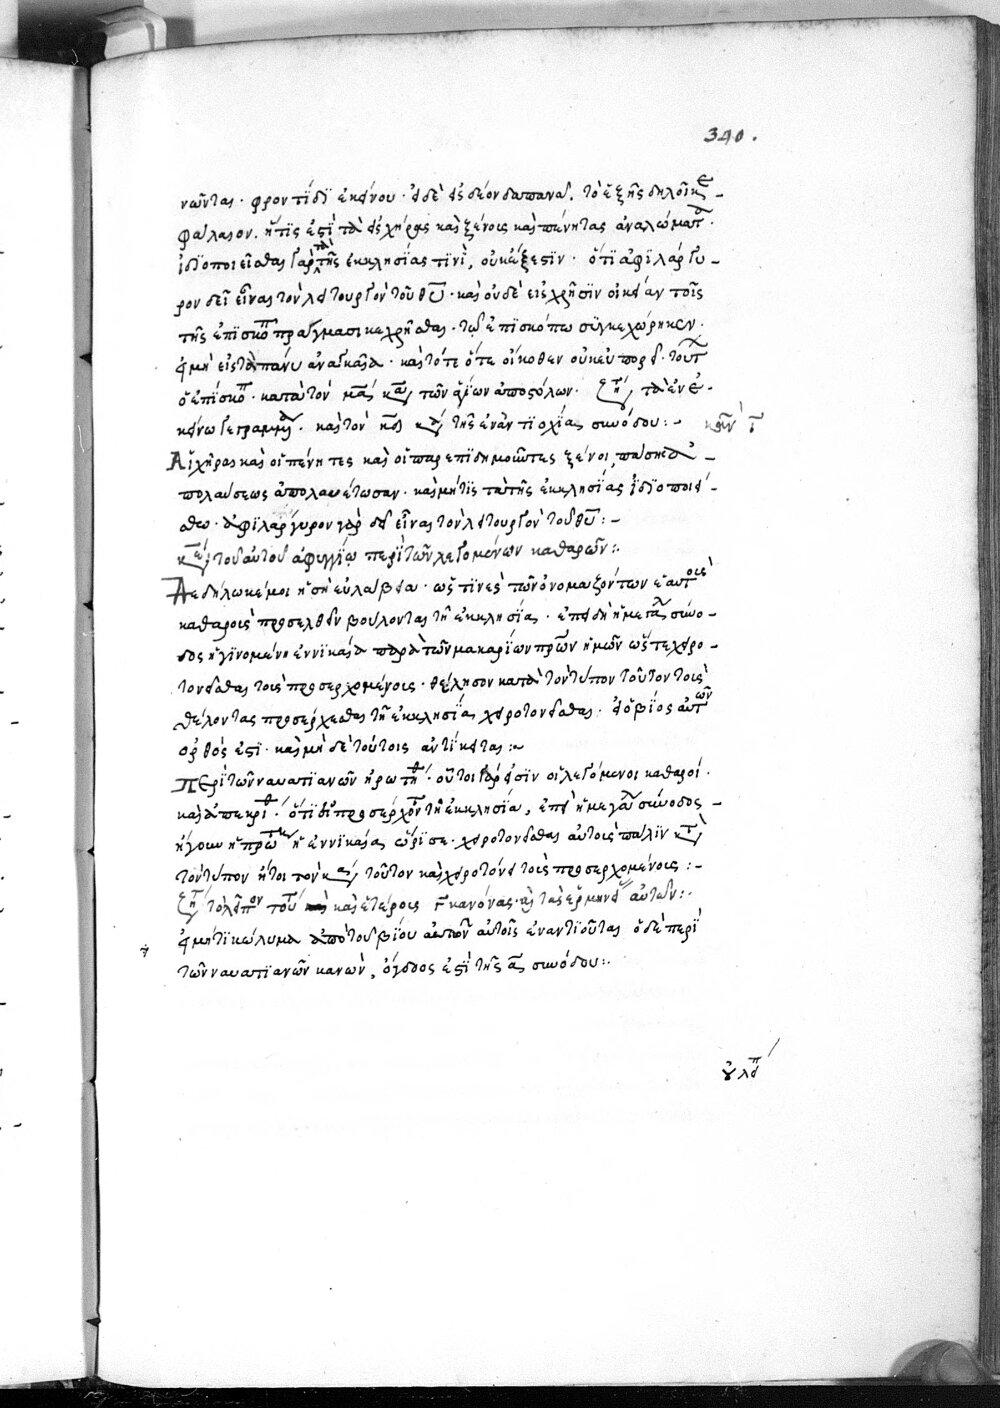 340.
νῶντας· φροντίδι ἐκείνου· εἰ δὲ εἰς δέον δαπανᾷ. τὸ ἑξῆς δηλοῖ κε-
φάλαιον. ἥτις ἐστὶ τὰ εἰς χήρας καὶ ξένοις καὶ πένητας ἀναλώματα·
ἰδιοποιεῖσθαι γὰρ τὰ τῆς ἐκκλησίας τινὶ, οὐκ ἔξεστιν· ὅτι ἀφιλάργυ-
ρον δεῖ εἶναι τὸν λειτουργὸν τοῦ θυ· καὶ οὐδὲ εἰς χρῆσιν οἰκείαν τοῖς
τῆς ἐπισκοπ πράγμασι κεχρῆσθαι· τῷ ἐπισκόπω συγκεχώρηκεν·
εἰ μὴ εἰς τὰ πάνυ ἀναγκαῖα· καὶ τότε ὅτε οἴκοθεν οὐκ εὐπορεῖ· τουτ
ὁ ἐπίσκοπ· κατὰ τὸν μα κα τῶν ἁγίων ἀποστόλων· ζητ τὰ ἐν ἐ-
κείνω γεγραμμ· καὶ τὸν κε κα τῆς ἐν ἀντιοχίας συνόδου:~
Αἱ χῆραι καὶ οἱ πένητες καὶ οἱ παρεπιδημοῦντες ξένοι, πάσης ἀ-
πολαύσεως ἀπολαυέτωσαν· καὶ μήτις τὰ τῆς ἐκκλησίας ἰδιοποιεί-
σθω· ἀφιλάργυρον γὰρ δεῖ εἶναι τὸν λειτουργὸν τοῦ θυ:-
τοῦ αὐτοῦ ἀφυγγίω περὶ τῶν λεγομένων καθαρῶν:·
Δεδήλωκέ μοι ἡ σὴ εὐλάβεια· ὥς τινὲς τῶν ὀνομαζόντων ἑαυτοὺς
καθαροὺς προσελθεῖν βούλονται τῇ ἐκκλησίᾳ· ἐπειδὴ ἡ μεγάλ σύνο-
δος ἡ γινομένη ἐν νικαία παρὰ τῶν μακαρίων πρων ἡμῶν ὥστε χειρο-
τονεῖσθαι τοὺς προσερχομένους· θέλησον κατὰ τὸν τύπον τοῦτον τοὺς
θέλοντας προσέρχεσθαι τῇ ἐκκλησίᾳ χειροτονεῖσθαι· εἰ ὁ βίος αὐτῶν
ὀρθός ἐστι· καὶ μηδὲ τούτοις ἀντίκειται:~
Περὶ τῶν ναυατιανῶν ἠρωτήθ· οὗτοι γάρ εἰσιν οἱ λεγόμενοι καθαροί·
καὶ ἀπεκρίθ· ὅτι εἰ προσέρχοντ τῇ ἐκκλησία, ἐπεὶ ἡ μεγάλ σύνοδος
ἤγουν ἡ πρώτ ἡ ἐν νικαίᾳ ὥρισε· χειροτονεῖσθαι αὐτοὺς πάλιν κατ
τὸν τύπον ἤτοι τὸν κα τοῦτον καὶ χειροτόνει τοὺς προσερχομένους:-
καὶ ἑτέρους γ κανόνας· καὶ τὰς ἑρμηνεί αὐτῶν:·
εἰ μήτι κώλυμα ἀπὸ τοῦ βίου αὐτῶν αὐτοῖς ἐναντιοῦται ὁ δὲ περὶ
τῶν ναυατιανῶν κανὼν, ὄγδοος ἐστὶ τῆς α συνόδου:·